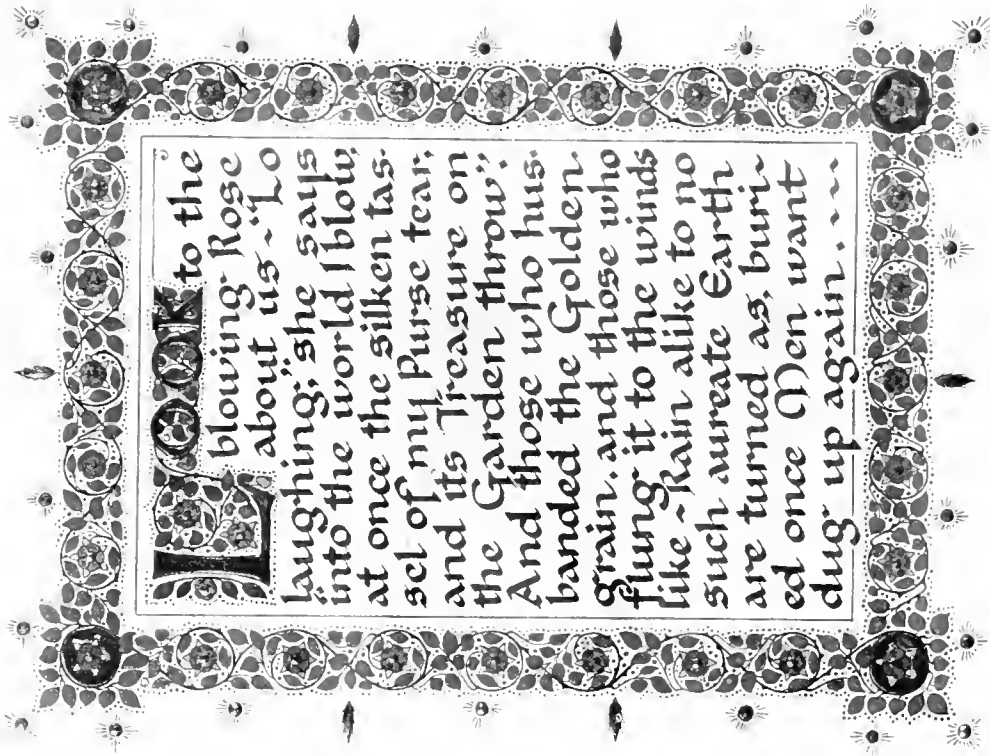 LOOK to the
blowing Rose
about us ~ "Lo
laughing," she says
"into the world I blow;
at once the silken tas-
sel of my Purse tear,
and its Treasure on
the Garden throw".
And those who hus-
banded the Golden
grain, and those who
flung it to the winds
like ~ Rain alike to no
such aureate Earth
are turned as, buri-
ed once Men want
dug up again. ~ ~